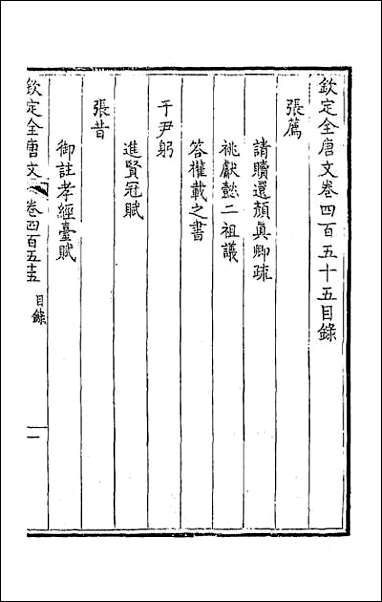 欽定全唐文卷四百五十五目錄
張薦
請贖還顏眞卿疏
祧獻懿二祖議
答權載之書
于尹躬
進賢冠賦
張昔
御註孝經臺賦
欽定全唐文
卷四百五十五
目錄
一